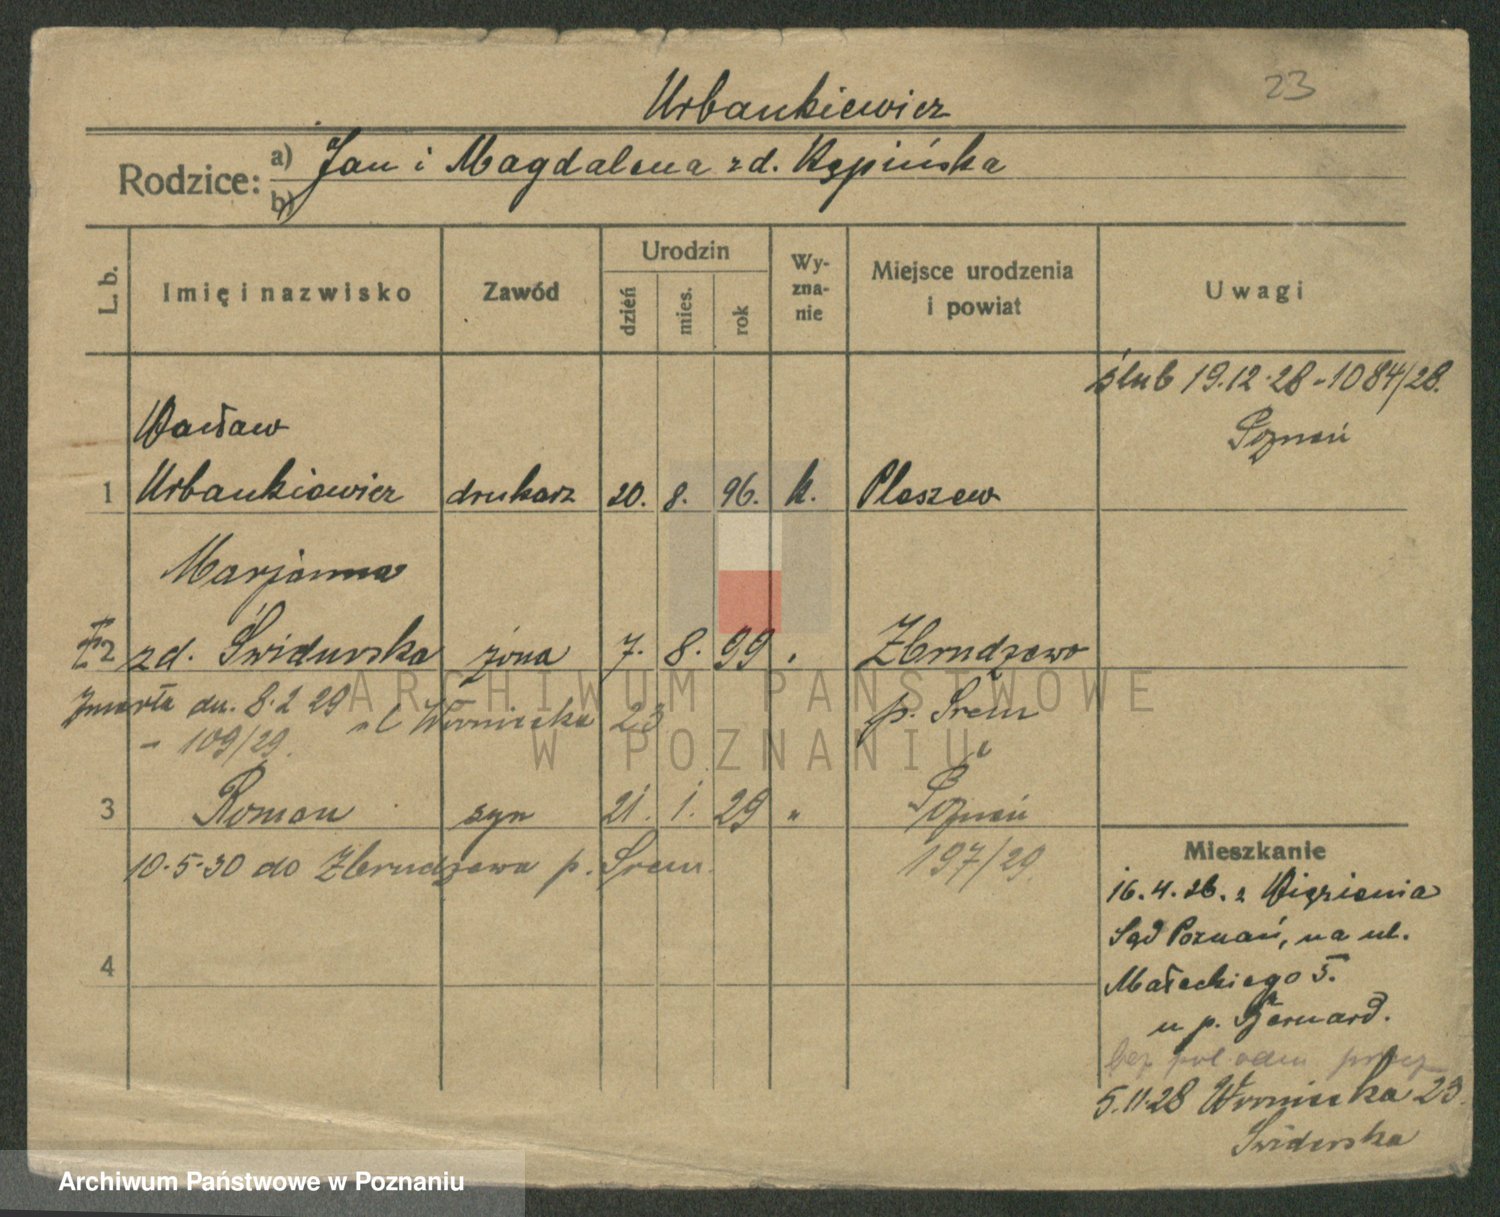 23
Urbankiewicz
Rodzice: a) Jan i Magdalena zd. Kępińska
b)
L. b. Imię i nazwisko Zawód Urodzin dzień mies. rok Wyznanie Miejsce urodzenia i powiat Uwagi
ślub 19.12.28 - 1084/28.
Poznań
Wacław
1 Urbankiewicz drukarz 20. 8. 96. k. Pleszew
Marjanna
2 zd. Świdurska żona 7. 8. 99 " Zbrudzewo
Zmarła dn. 8.2 29 Wroniecka 23 p. Śrem
- 109/29.
3 Roman syn 21. 1. 29 " Poznań
10.5.30 do Zbrudzewa p. Śrem. 197/29.
4
Mieszkanie
16.4.26. z Więzienia
Sąd Poznań, na ul.
Małeckiego 5.
u p. Bernard.
bez pol. odm.
5.11.28 Wroniecka 23.
Świderska
ARCHIWUM PAŃSTWOWE
W POZNANIU
Archiwum Państwowe w Poznaniu